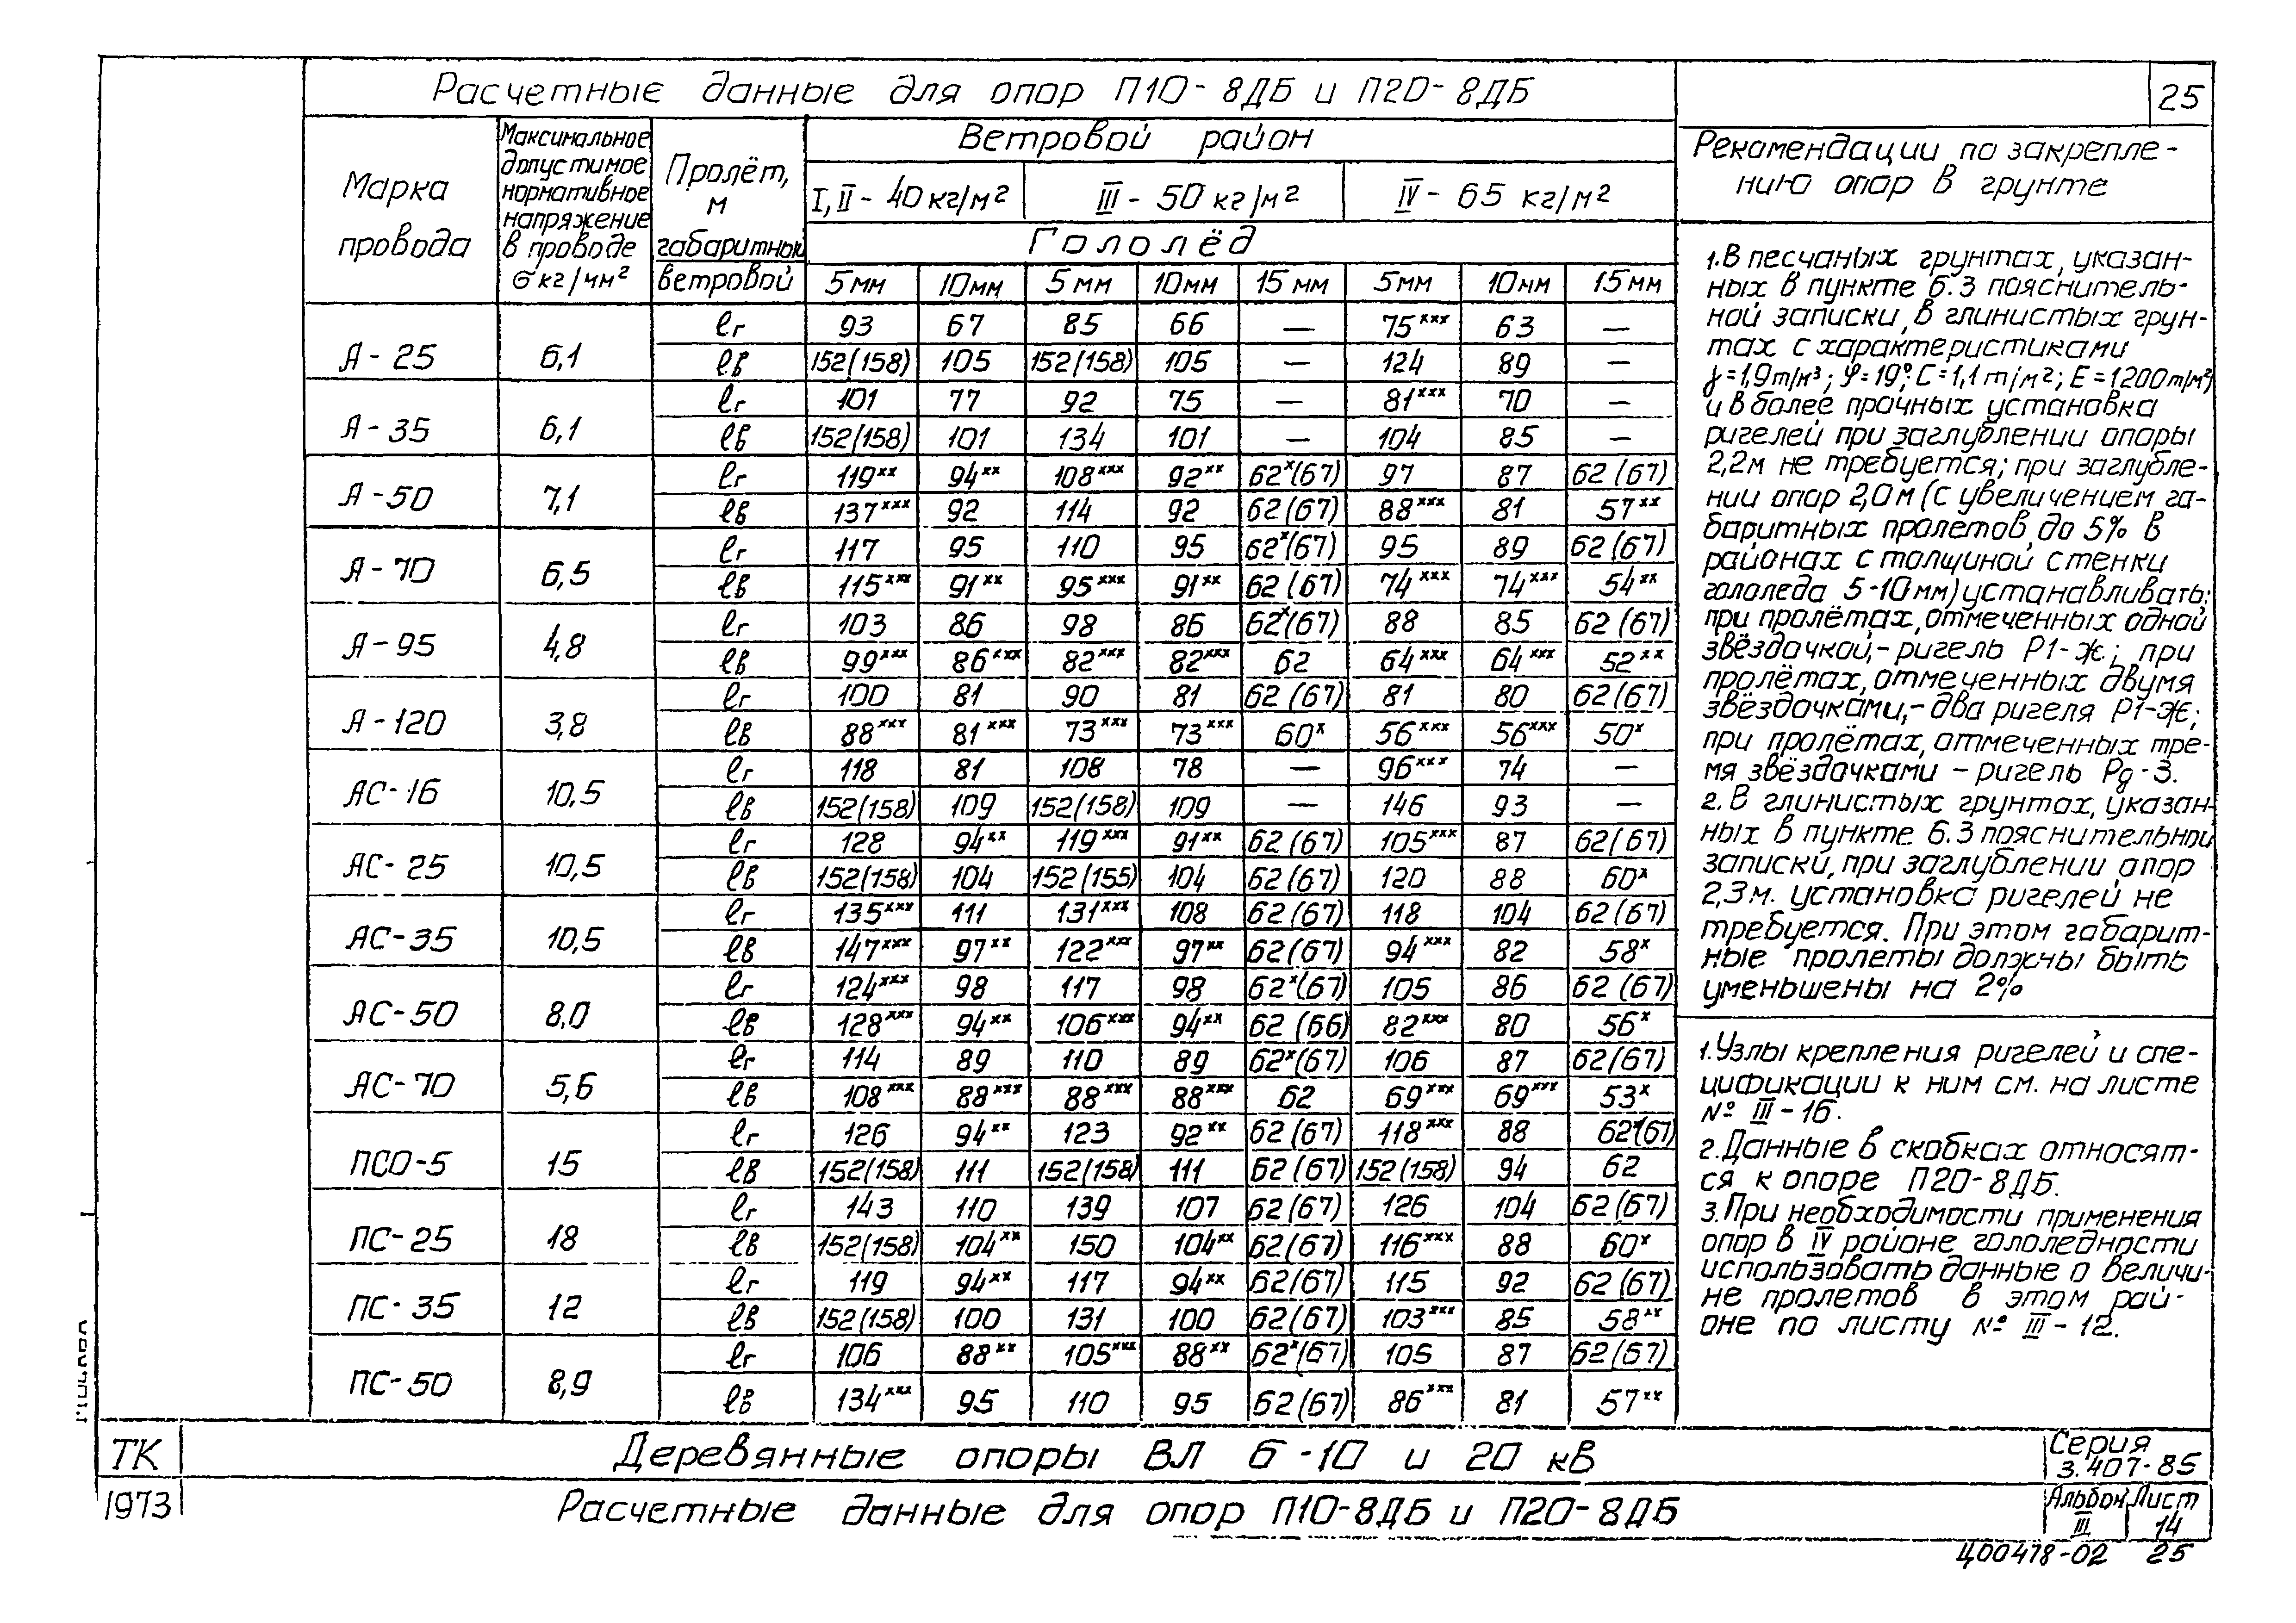 Расчетные данные для опор П10-8ДБ и П20-8ДБ
25
Марка провода
Максимальное допустимое нормативное напряжение в проводе σ кг/мм²
Пролёт, м габаритный ветровой
Ветровой район
I, II - 40 кг/м² III - 50 кг/м² IV - 65 кг/м²
Гололёд
5мм 10мм 5мм 10мм 15мм 5мм 10мм 15мм
А-25 6,1
lг 93 67 85 66 — 75ˣˣˣ 63 —
lв 152(158) 105 152(158) 105 — 124 89 —
А-35 6,1
lг 101 77 92 75 — 81ˣˣˣ 70 —
lв 152(158) 101 134 101 — 104 85 —
А-50 7,1
lг 119ˣˣ 94ˣˣ 108ˣˣˣ 92ˣˣ 62ˣ(67) 97 87 62(67)
lв 137ˣˣˣ 92 114 92 62(67) 88ˣˣˣ 81 57ˣˣ
А-70 6,5
lг 117 95 110 95 62ˣ(67) 95 89 62(67)
lв 115ˣˣˣ 91ˣˣ 95ˣˣˣ 91ˣˣ 62(67) 74ˣˣˣ 74ˣˣˣ 54ˣˣ
А-95 4,8
lг 103 86 98 86 62ˣ(67) 88 85 62(67)
lв 99ˣˣˣ 86ˣˣˣ 82ˣˣˣ 82ˣˣˣ 62 64ˣˣˣ 64ˣˣˣ 52ˣˣ
А-120 3,8
lг 100 81 90 81 62(67) 81 80 62(67)
lв 88ˣˣˣ 81ˣˣˣ 73ˣˣˣ 73ˣˣˣ 60ˣ 56ˣˣˣ 56ˣˣˣ 50ˣ
АС-16 10,5
lг 118 81 108 78 — 96ˣˣˣ 74 —
lв 152(158) 109 152(158) 109 — 146 93 —
АС-25 10,5
lг 128 94ˣˣ 119ˣˣˣ 91ˣˣ 62(67) 105ˣˣˣ 87 62(67)
lв 152(158) 104 152(155) 104 62(67) 120 88 60ˣ
АС-35 10,5
lг 135ˣˣˣ 111 131ˣˣˣ 108 62(67) 118 104 62(67)
lв 147ˣˣˣ 97ˣˣ 122ˣˣˣ 97ˣˣ 62(67) 94ˣˣˣ 82 58ˣ
АС-50 8,0
lг 124ˣˣˣ 98 117 98 62ˣ(67) 105 86 62(67)
lв 128ˣˣˣ 94ˣˣ 106ˣˣˣ 94ˣˣ 62(66) 82ˣˣˣ 80 56ˣ
АС-70 5,6
lг 114 89 110 89 62ˣ(67) 106 87 62(67)
lв 108ˣˣˣ 88ˣˣˣ 88ˣˣˣ 88ˣˣˣ 62 69ˣˣˣ 69ˣˣˣ 53ˣ
ПСО-5 15
lг 126 94ˣˣ 123 92ˣˣ 62(67) 118ˣˣˣ 88 62ˣ(67)
lв 152(158) 111 152(158) 111 62(67) 152(158) 94 62
ПС-25 18
lг 143 110 139 107 62(67) 126 104 62(67)
lв 152(158) 104ˣˣ 150 104ˣˣ 62(67) 116ˣˣˣ 88 60ˣ
ПС-35 12
lг 119 94ˣˣ 117 94ˣˣ 62(67) 115 92 62(67)
lв 152(158) 100 131 100 62(67) 103ˣˣˣ 85 58ˣˣ
ПС-50 8,9
lг 106 88ˣˣ 105ˣˣˣ 88ˣˣ 62ˣ(67) 105 87 62(67)
lв 134ˣˣˣ 95 110 95 62(67) 86ˣˣˣ 81 57ˣˣ
Рекомендации по закрепле-
нию опор в грунте
1. В песчаных грунтах, указан-
ных в пункте 6.3 пояснитель-
ной записки, в глинистых грун-
тах с характеристиками
γ=1,9т/м³; φ=19°; С=1,1т/м²; Е=1200т/м²
и в более прочных установка
ригелей при заглублении опоры
2,2м не требуется; при заглубле-
нии опор 2,0м (с увеличением га-
баритных пролетов до 5% в
районах с толщиной стенки
гололеда 5-10мм) устанавливать:
при пролётах, отмеченных одной
звёздочкой,- ригель Р1-Ж; при
пролётах, отмеченных двумя
звёздочками,- два ригеля Р1-Ж;
при пролётах, отмеченных тре-
мя звёздочками - ригель Рд-3.
2. В глинистых грунтах, указан-
ных в пункте 6.3 пояснительной
записки, при заглублении опор
2,3м. установка ригелей не
требуется. При этом габарит-
ные пролеты должны быть
уменьшены на 2%
1. Узлы крепления ригелей и спе-
цификации к ним см. на листе
№ III-16.
2. Данные в скобках относят-
ся к опоре П20-8ДБ.
3. При необходимости применения
опор в IV районе гололедности
использовать данные о величи-
не пролетов в этом рай-
оне по листу № III-12.
ТК
1973
Деревянные опоры ВЛ 6-10 и 20 кВ
Расчетные данные для опор П10-8ДБ и П20-8ДБ
Серия
3.407-85
Альбом Лист
III 14
Ц00478-02 25